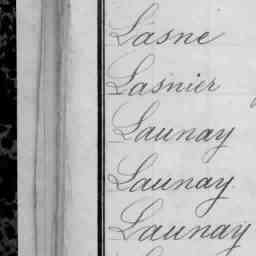 Lasne
Lasnier
Launay
Launay.
Launay